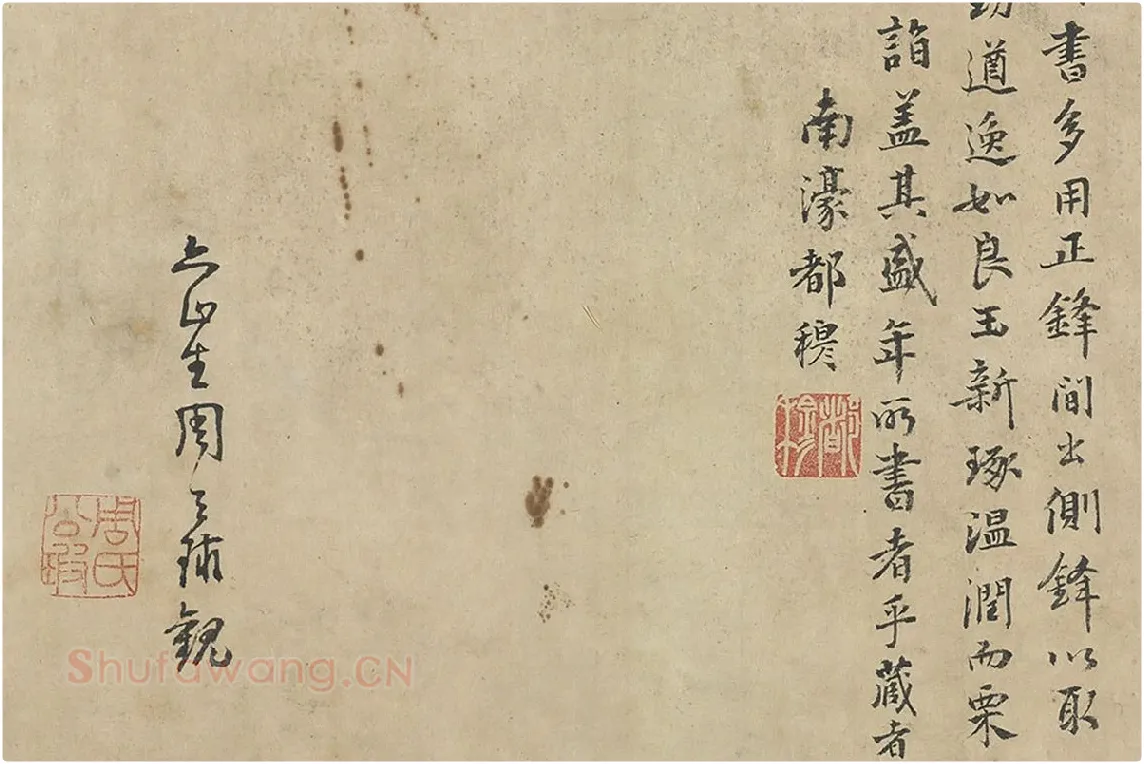 書多用正鋒間出側鋒以取
遒逸如良玉新琢温潤而栗
詣盖其盛年所書者乎藏者
南濠都穆
都穆
六止生周天球觀
周氏公瑕
Shufawang.CN